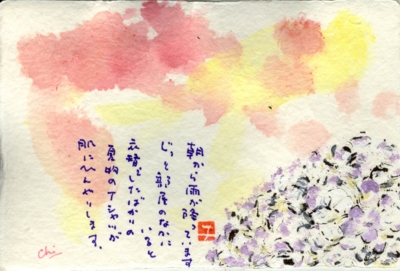 朝から雨が降っています
じっと部屋のなかに
いると
衣替えしたばかりの
夏物のTシャツが
肌にひんやりします。
Chi